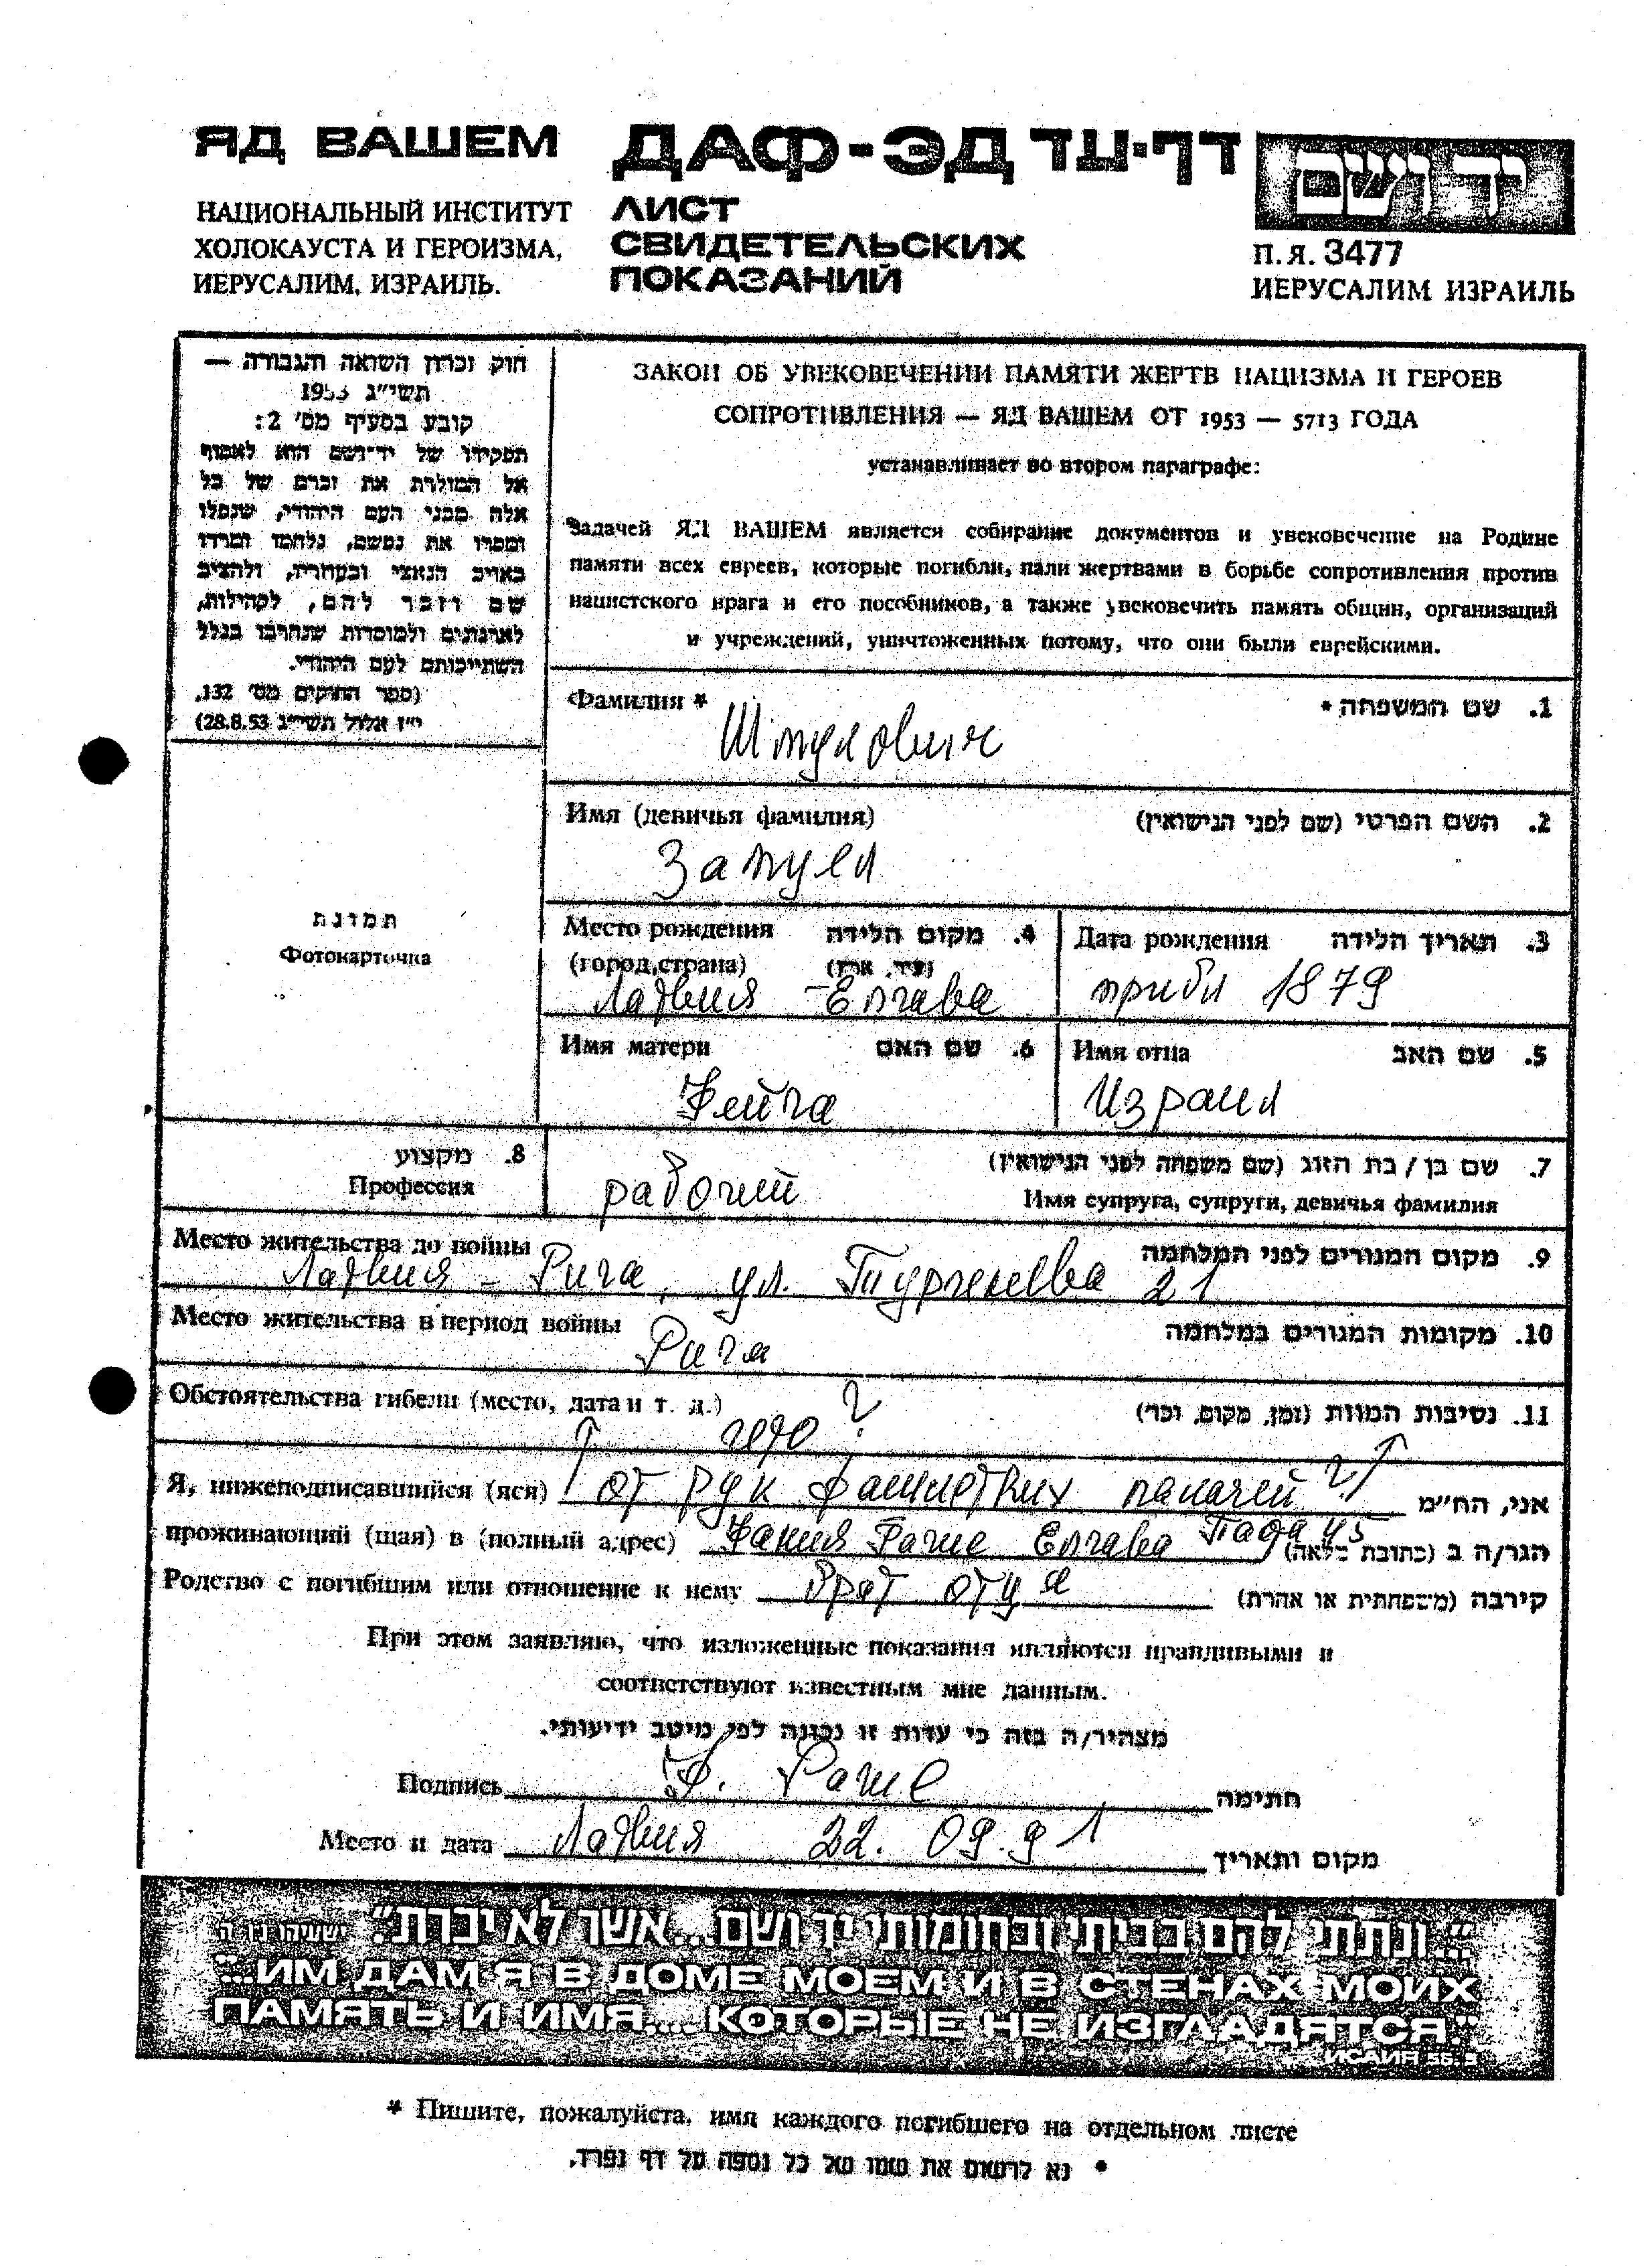 ЯД ВАШЕМ
НАЦИОНАЛЬНЫЙ ИНСТИТУТ
ХОЛОКАУСТА И ГЕРОИЗМА,
ИЕРУСАЛИМ, ИЗРАИЛЬ.
ДАФ-ЭД דף-עד
ЛИСТ
СВИДЕТЕЛЬСКИХ
ПОКАЗАНИЙ
יד ושם
П.Я. 3477
ИЕРУСАЛИМ ИЗРАИЛЬ
חוק זכרון השואה והגבורה —
תשי"ג 1953
קובע בסעיף מס' 2:
תפקידו של יד-ושם הוא לאסוף
אל המולדת את זכרם של כל
אלה מבני העם היהודי, שנפלו
ומסרו את נפשם, נלחמו ומרדו
באויב הנאצי ובעוזריו, ולהציב
שם וזכר להם, לקהילות,
לארגונים ולמוסדות שנחרבו בגלל
השתייכותם לעם היהודי.
(ספר החוקים מס' 132,
י"ז אלול תשי"ג 28.8.53)
ЗАКОН ОБ УВЕКОВЕЧЕНИИ ПАМЯТИ ЖЕРТВ НАЦИЗМА И ГЕРОЕВ
СОПРОТИВЛЕНИЯ — ЯД ВАШЕМ ОТ 1953 — 5713 ГОДА
устанавливает во втором параграфе:
Задачей ЯД ВАШЕМ является собирание документов и увековечение на Родине
памяти всех евреев, которые погибли, пали жертвами в борьбе сопротивления против
нацистского врага и его пособников, а также увековечить память общин, организаций
и учреждений, уничтоженных потому, что они были еврейскими.
Фамилия * 1. שם המשפחה *
Имя (девичья фамилия) 2. השם הפרטי (שם לפני הנישואין)
Замуел
תמונה
Фотокарточка
Место рождения 4. מקום הלידה
(город, страна) (עיר, ארץ)
Латвия - Елгава
Дата рождения 3. תאריך הלידה
прибл 1879
Имя матери 6. שם האם
Фейга
Имя отца 5. שם האב
Израил
8. מקצוע
Профессия
рабочий
7. שם בן / בת הזוג (שם משפחה לפני הנישואין)
Имя супруга, супруги, девичья фамилия
Место жительства до войны 9. מקום המגורים לפני המלחמה
Латвия - Рига, ул. Тургенева 21
Место жительства в период войны 10. מקומות המגורים במלחמה
Рига
Обстоятельства гибели (место, дата и т. д.) 11. נסיבות המוות (זמן, מקום, וכו')
гетто ?
Я, нижеподписавшийся (яся) от рук фашистких палачей ? אני, הח"מ
проживающий (щая) в (полный адрес) Фания Раге Елгава הגר/ה ב (כתובת מלאה)
Родство с погибшим или отношение к нему брат отца קירבה (משפחתית או אחרת)
При этом заявляю, что изложенные показания являются правдивыми и
соответствуют известным мне данным.
מצהיר/ה בזה כי עדות זו נכונה לפי מיטב ידיעותי.
Подпись Ф. Раге חתימה
Место и дата Латвия 22. 09.91 מקום ותאריך
"...ונתתי להם בביתי ובחומותי יד ושם...אשר לא יכרת." ישעיהו נו ה
"...ИМ ДАМ Я В ДОМЕ МОЕМ И В СТЕНАХ МОИХ
ПАМЯТЬ И ИМЯ.... КОТОРЫЕ НЕ ИЗГЛАДЯТСЯ."
ИСАИИ 56.5
* Пишите, пожалуйста, имя каждого погибшего на отдельном листе
* נא לרשום את שמו של כל נספה על דף נפרד.